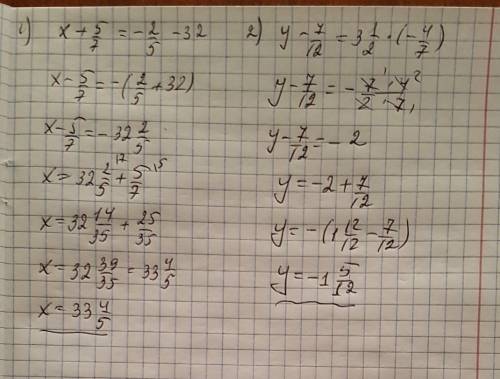 1) x + 5/7 = -2/5 - 32
x - 5/7 = -(2/5 + 32)
x - 5/7 = -32 2/5
x = 32 2/5 + 5/7
x = 32 14/35 + 25/35
x = 32 39/35 = 33 4/5
x = 33 4/5
2) y - 7/12 = 3 1/2 · (-4/7)
y - 7/12 = - 7¹ · 4² / 2 · 7₁
y - 7/12 = - 2
y = -2 + 7/12
y = -(1 12/12 - 7/12)
y = -1 5/12